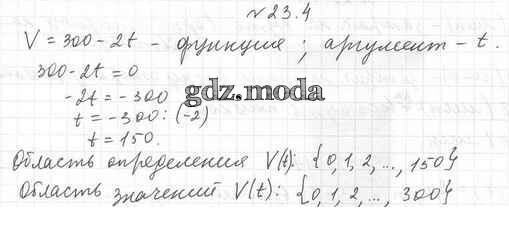 №23.4
V = 300 - 2t - функция; аргумент - t.
300 - 2t = 0
-2t = -300
gdz.moda
t = -300 : (-2)
t = 150.
Область определения V(t): {0, 1, 2, ..., 150}
Область значений V(t): {0, 1, 2, ..., 300}